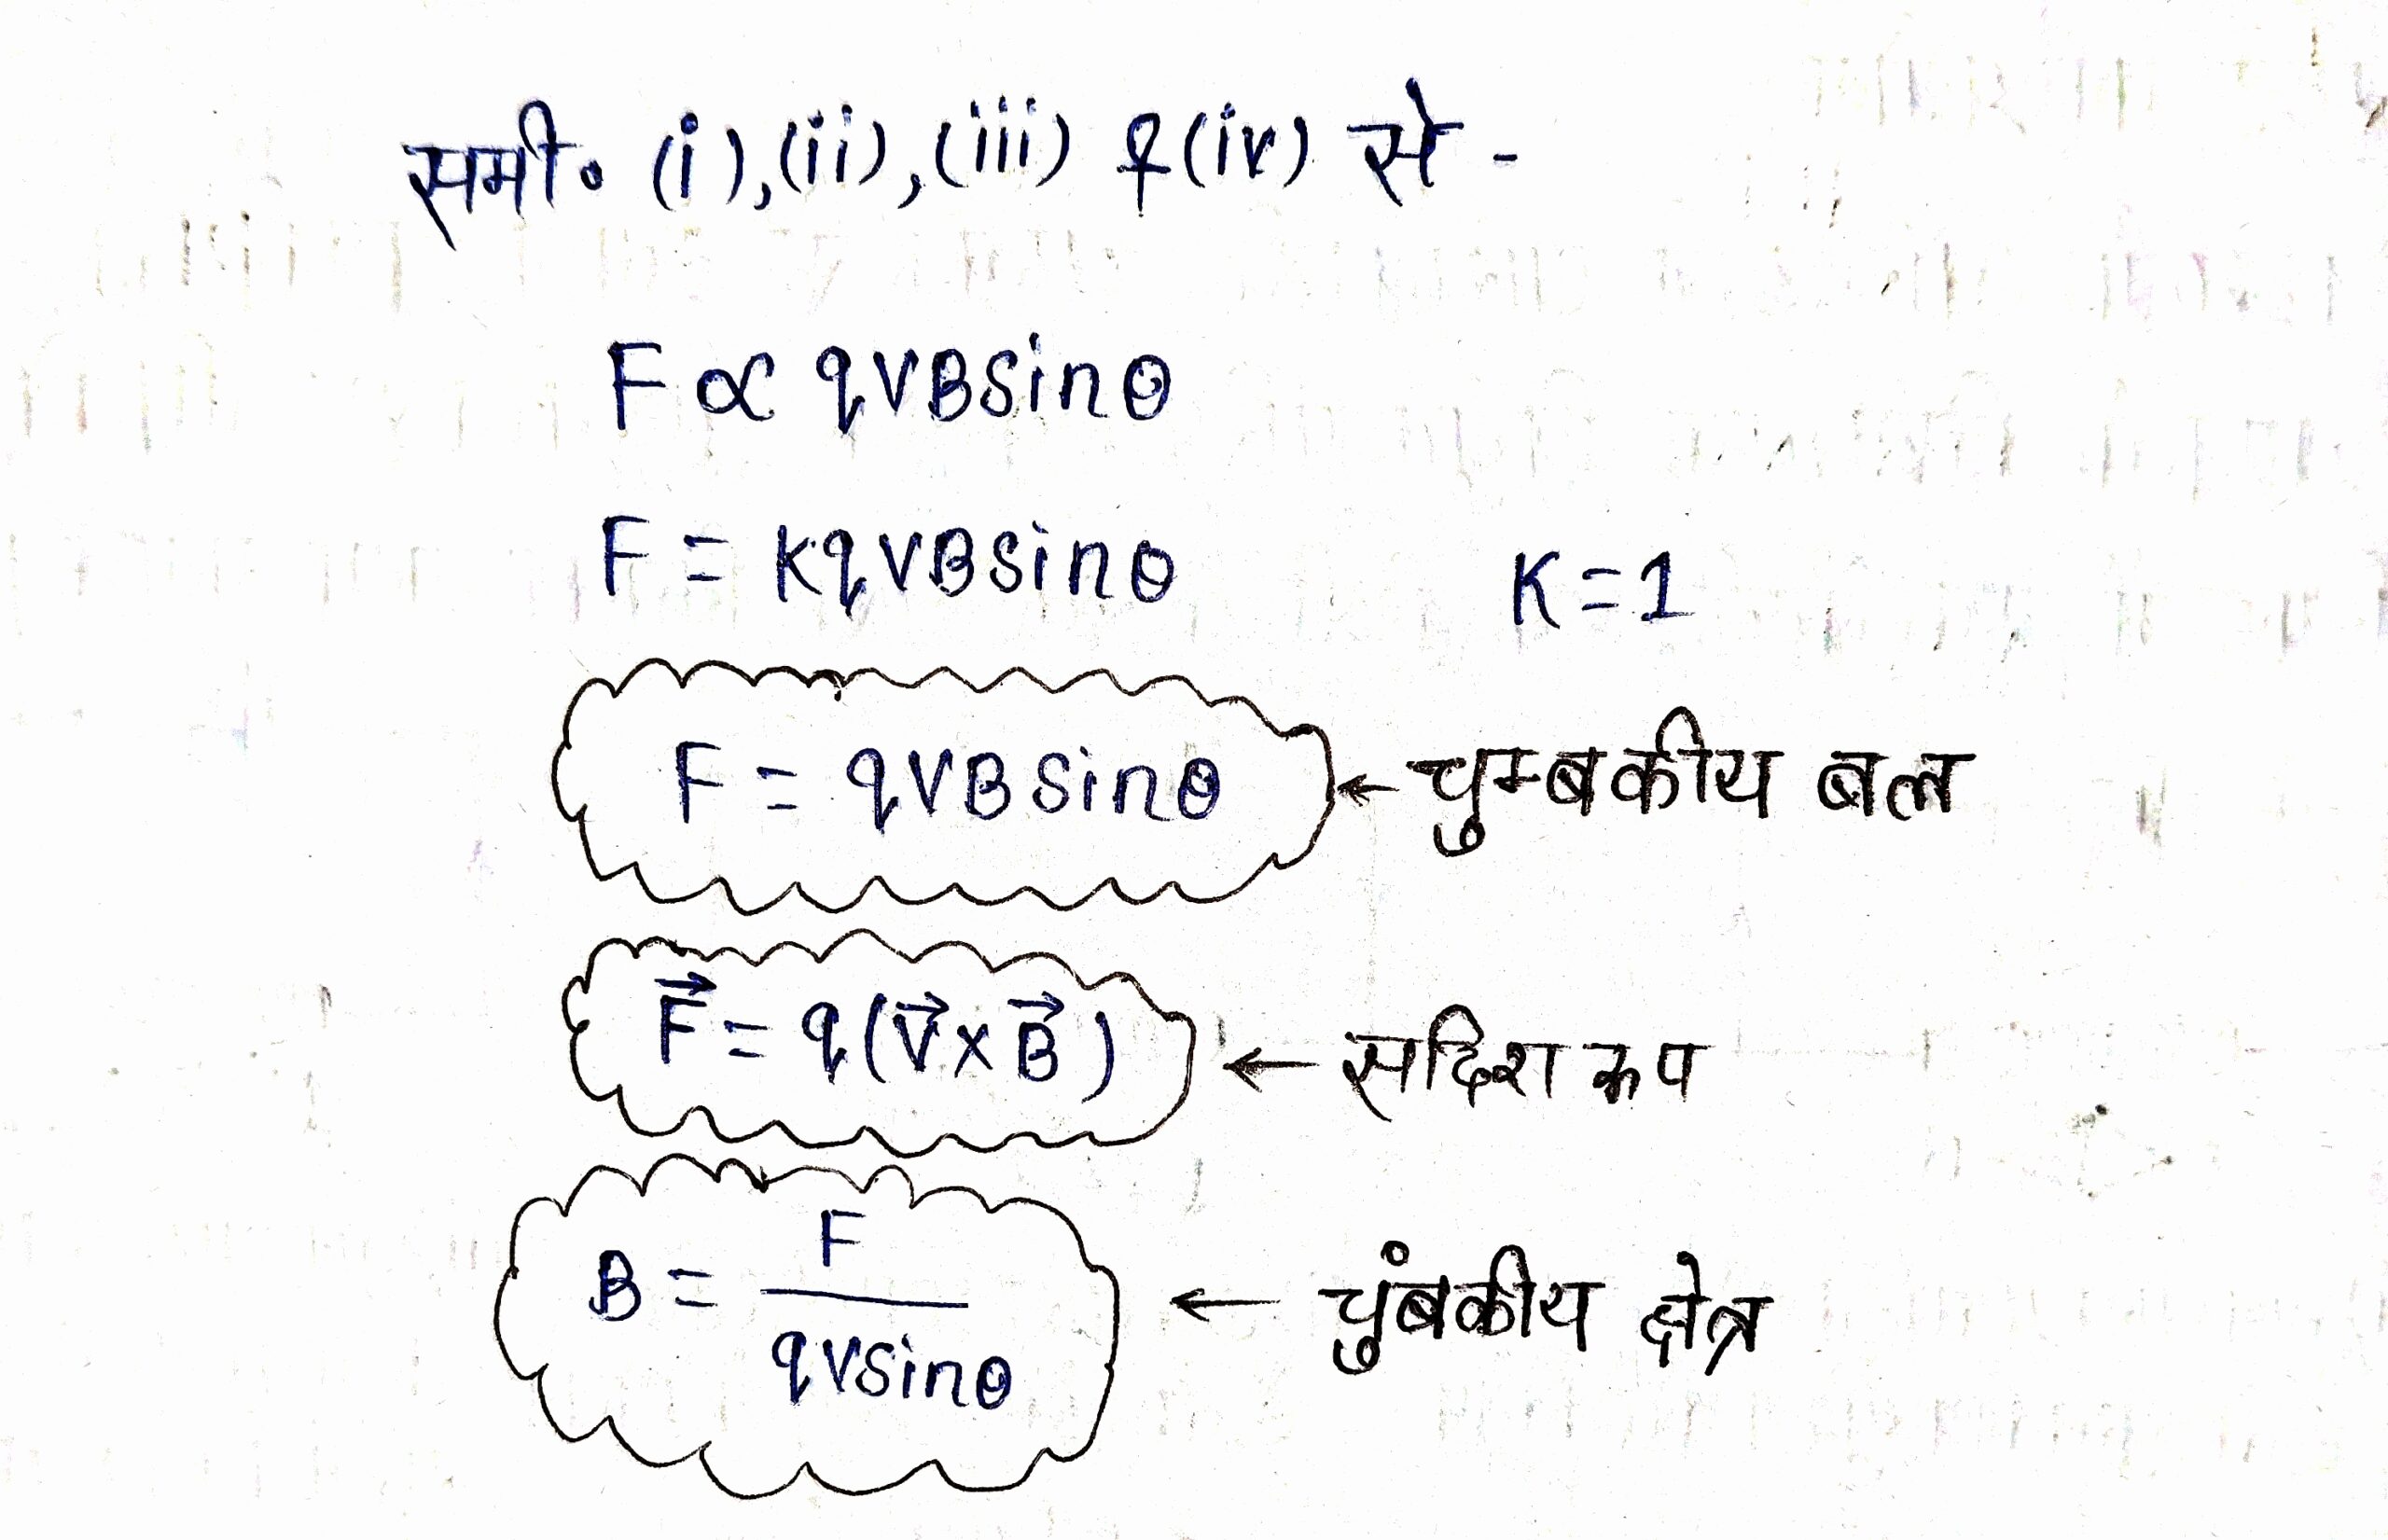 समी० (i),(ii),(iii) & (iv) से -
F ∝ qVBsinθ
F = KqVBsinθ K=1
F = qVBsinθ ← चुम्बकीय बल
F⃗ = q(V⃗×B⃗) ← सदिश रूप
B = F / qVsinθ ← चुंबकीय क्षेत्र